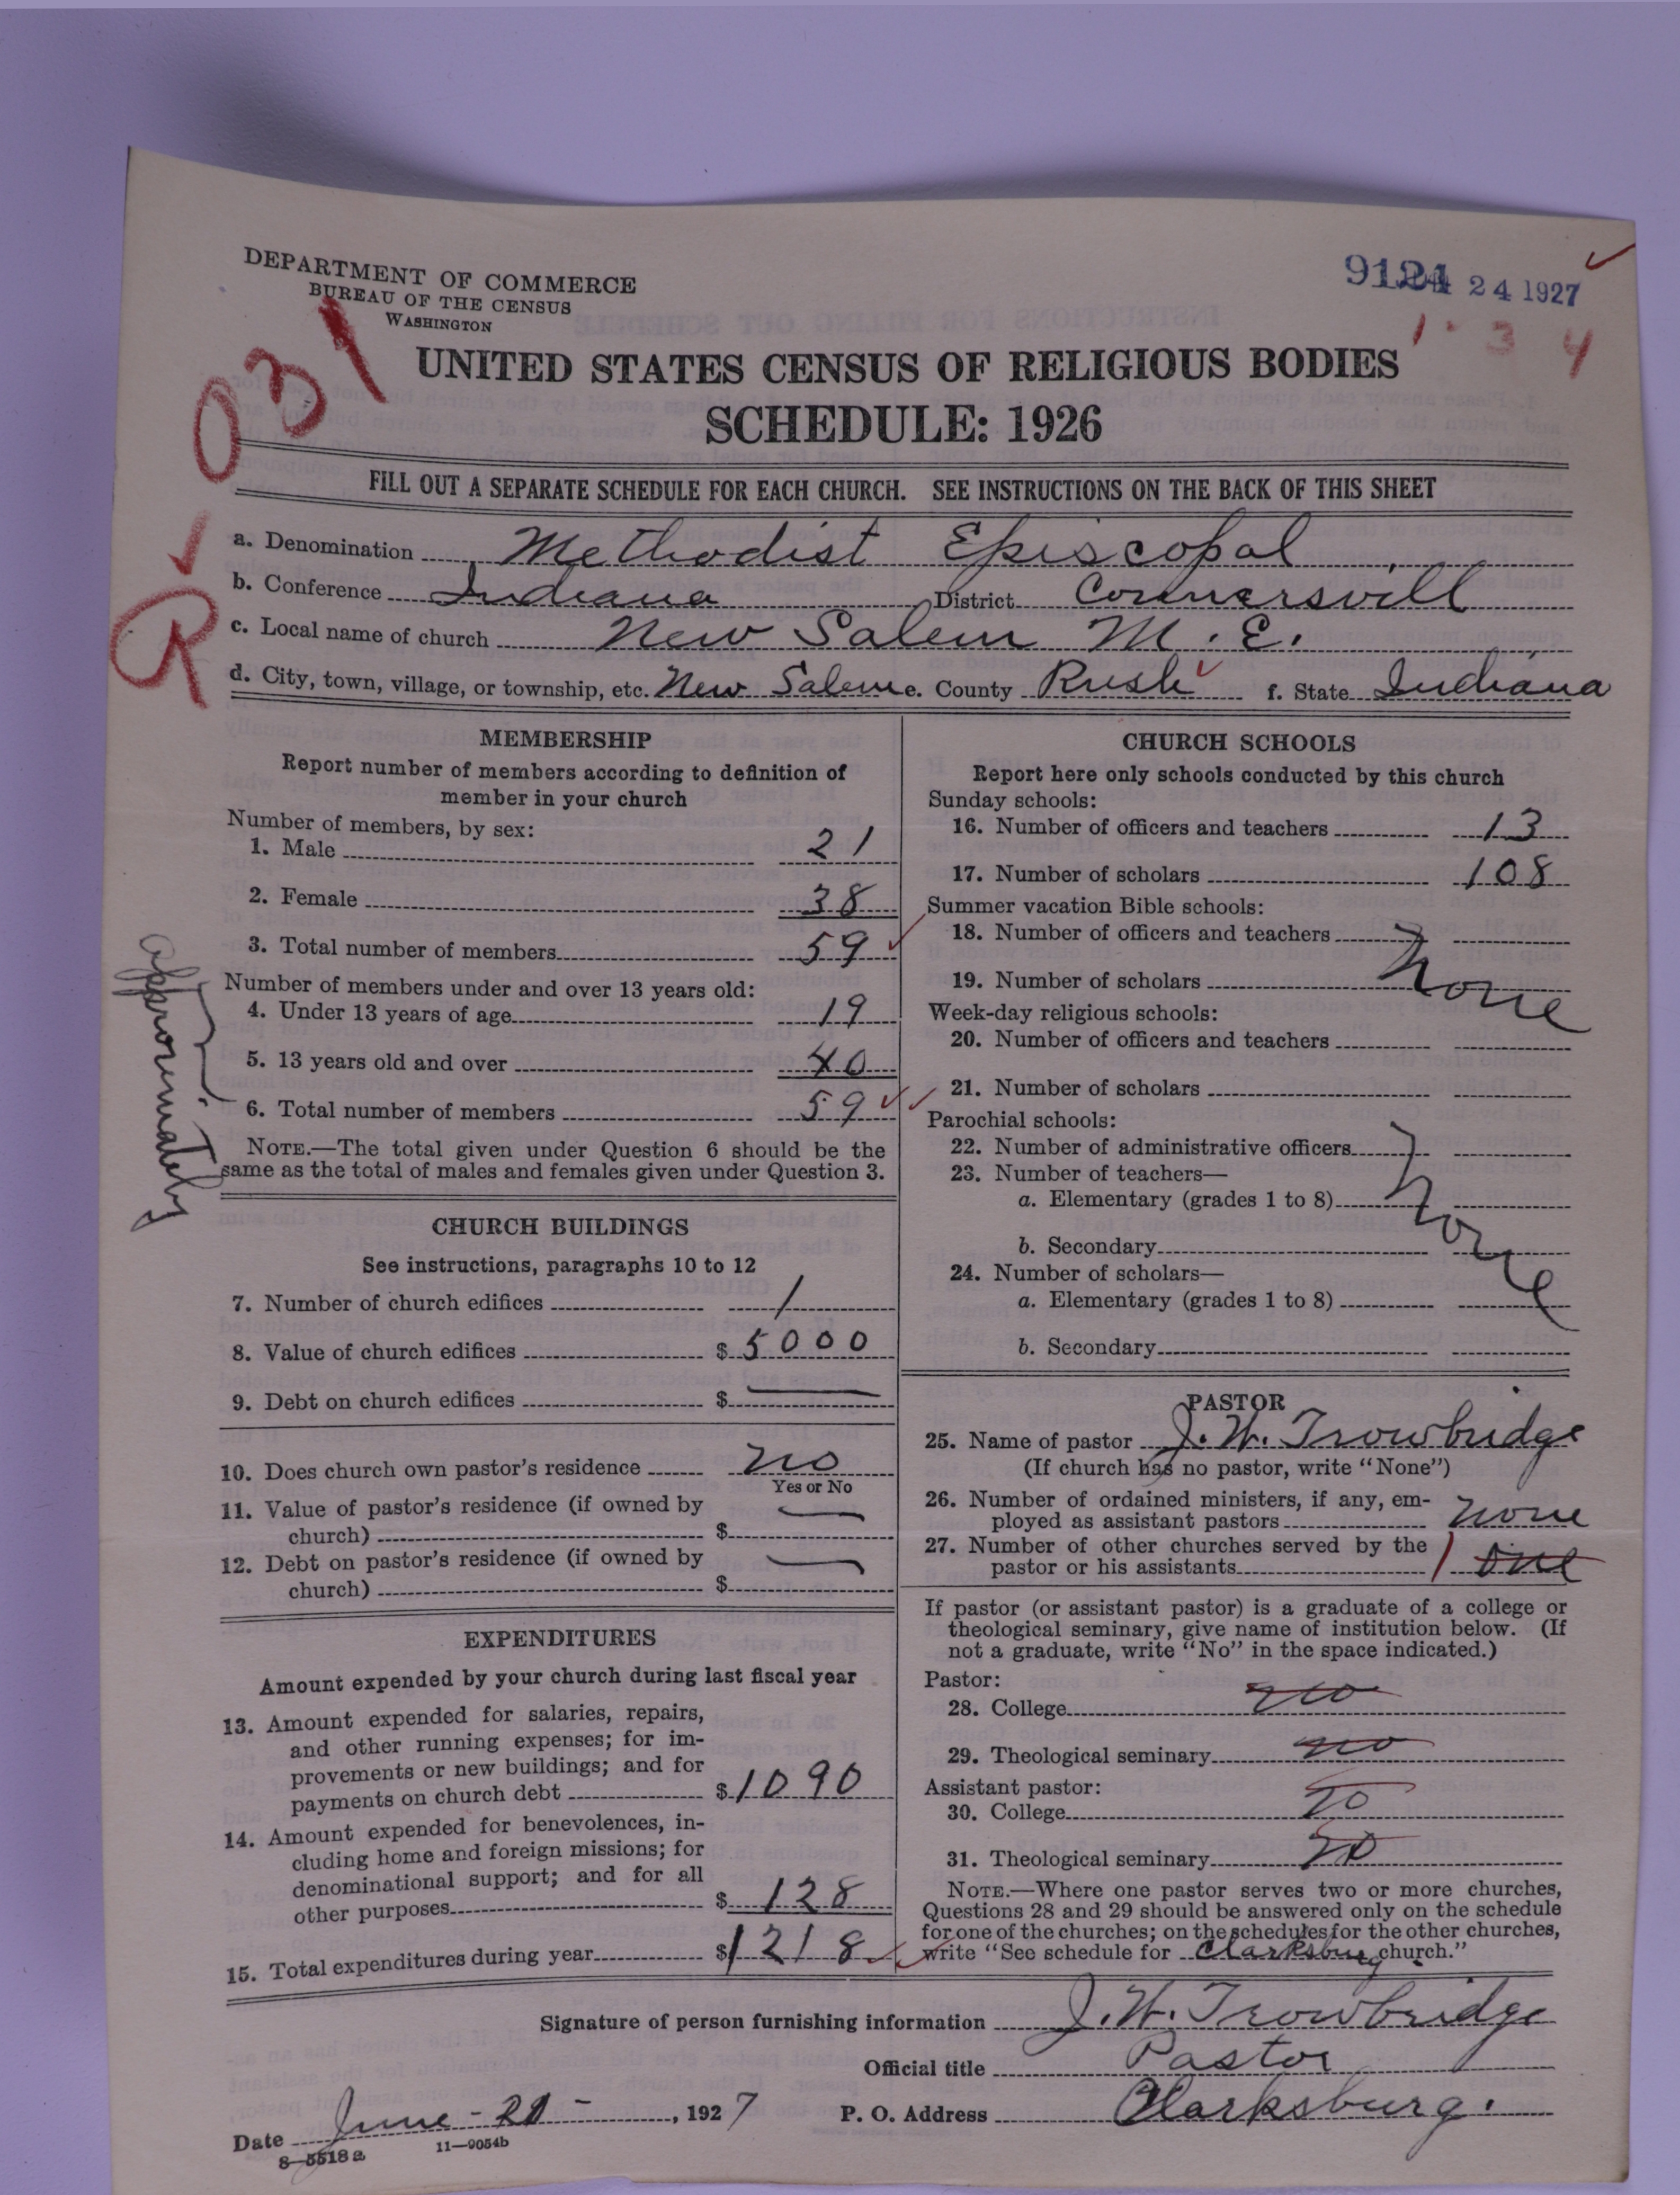 DEPARTMENT OF COMMERCE
BUREAU OF THE CENSUS
WASHINGTON
24 1927
1 3 4
031
UNITED STATES CENSUS OF RELIGIOUS BODIES
SCHEDULE: 1926
FILL OUT A SEPARATE SCHEDULE FOR EACH CHURCH. SEE INSTRUCTIONS ON THE BACK OF THIS SHEET
R
a. Denomination Methodist Episcopal
b. Conference Indiana District Connersvill
c. Local name of church New Salem M. E.
d. City, town, village, or township, etc. New Salem e. County Rush f. State Indiana
MEMBERSHIP
Report number of members according to definition of
member in your church
Number of members, by sex:
1. Male 21
2. Female 38
3. Total number of members 59
Number of members under and over 13 years old:
4. Under 13 years of age 19
5. 13 years old and over 40
6. Total number of members 59
approximately
NOTE.—The total given under Question 6 should be the
same as the total of males and females given under Question 3.
CHURCH BUILDINGS
See instructions, paragraphs 10 to 12
7. Number of church edifices 1
8. Value of church edifices $ 5000
9. Debt on church edifices $ —
10. Does church own pastor's residence no
Yes or No
11. Value of pastor's residence (if owned by
church) $ —
12. Debt on pastor's residence (if owned by
church) $ —
EXPENDITURES
Amount expended by your church during last fiscal year
13. Amount expended for salaries, repairs,
and other running expenses; for im-
provements or new buildings; and for
payments on church debt $ 1090
14. Amount expended for benevolences, in-
cluding home and foreign missions; for
denominational support; and for all
other purposes $ 128
15. Total expenditures during year $ 1218
CHURCH SCHOOLS
Report here only schools conducted by this church
Sunday schools:
16. Number of officers and teachers 13
17. Number of scholars 108
Summer vacation Bible schools:
18. Number of officers and teachers
19. Number of scholars None
Week-day religious schools:
20. Number of officers and teachers
21. Number of scholars
Parochial schools:
22. Number of administrative officers
23. Number of teachers—
a. Elementary (grades 1 to 8) None
b. Secondary
24. Number of scholars—
a. Elementary (grades 1 to 8)
b. Secondary
PASTOR
25. Name of pastor J. W. Trowbridge
(If church has no pastor, write "None")
26. Number of ordained ministers, if any, em-
ployed as assistant pastors none
27. Number of other churches served by the
pastor or his assistants 1 one
If pastor (or assistant pastor) is a graduate of a college or
theological seminary, give name of institution below. (If
not a graduate, write "No" in the space indicated.)
Pastor:
28. College no
29. Theological seminary no
Assistant pastor:
30. College no
31. Theological seminary no
NOTE.—Where one pastor serves two or more churches,
Questions 28 and 29 should be answered only on the schedule
for one of the churches; on the schedules for the other churches,
write "See schedule for Clarksburg church."
Signature of person furnishing information J. W. Trowbridge
Official title Pastor
Date June - 21 - , 1927 P. O. Address Clarksburg.
8—5518a 11—9054b